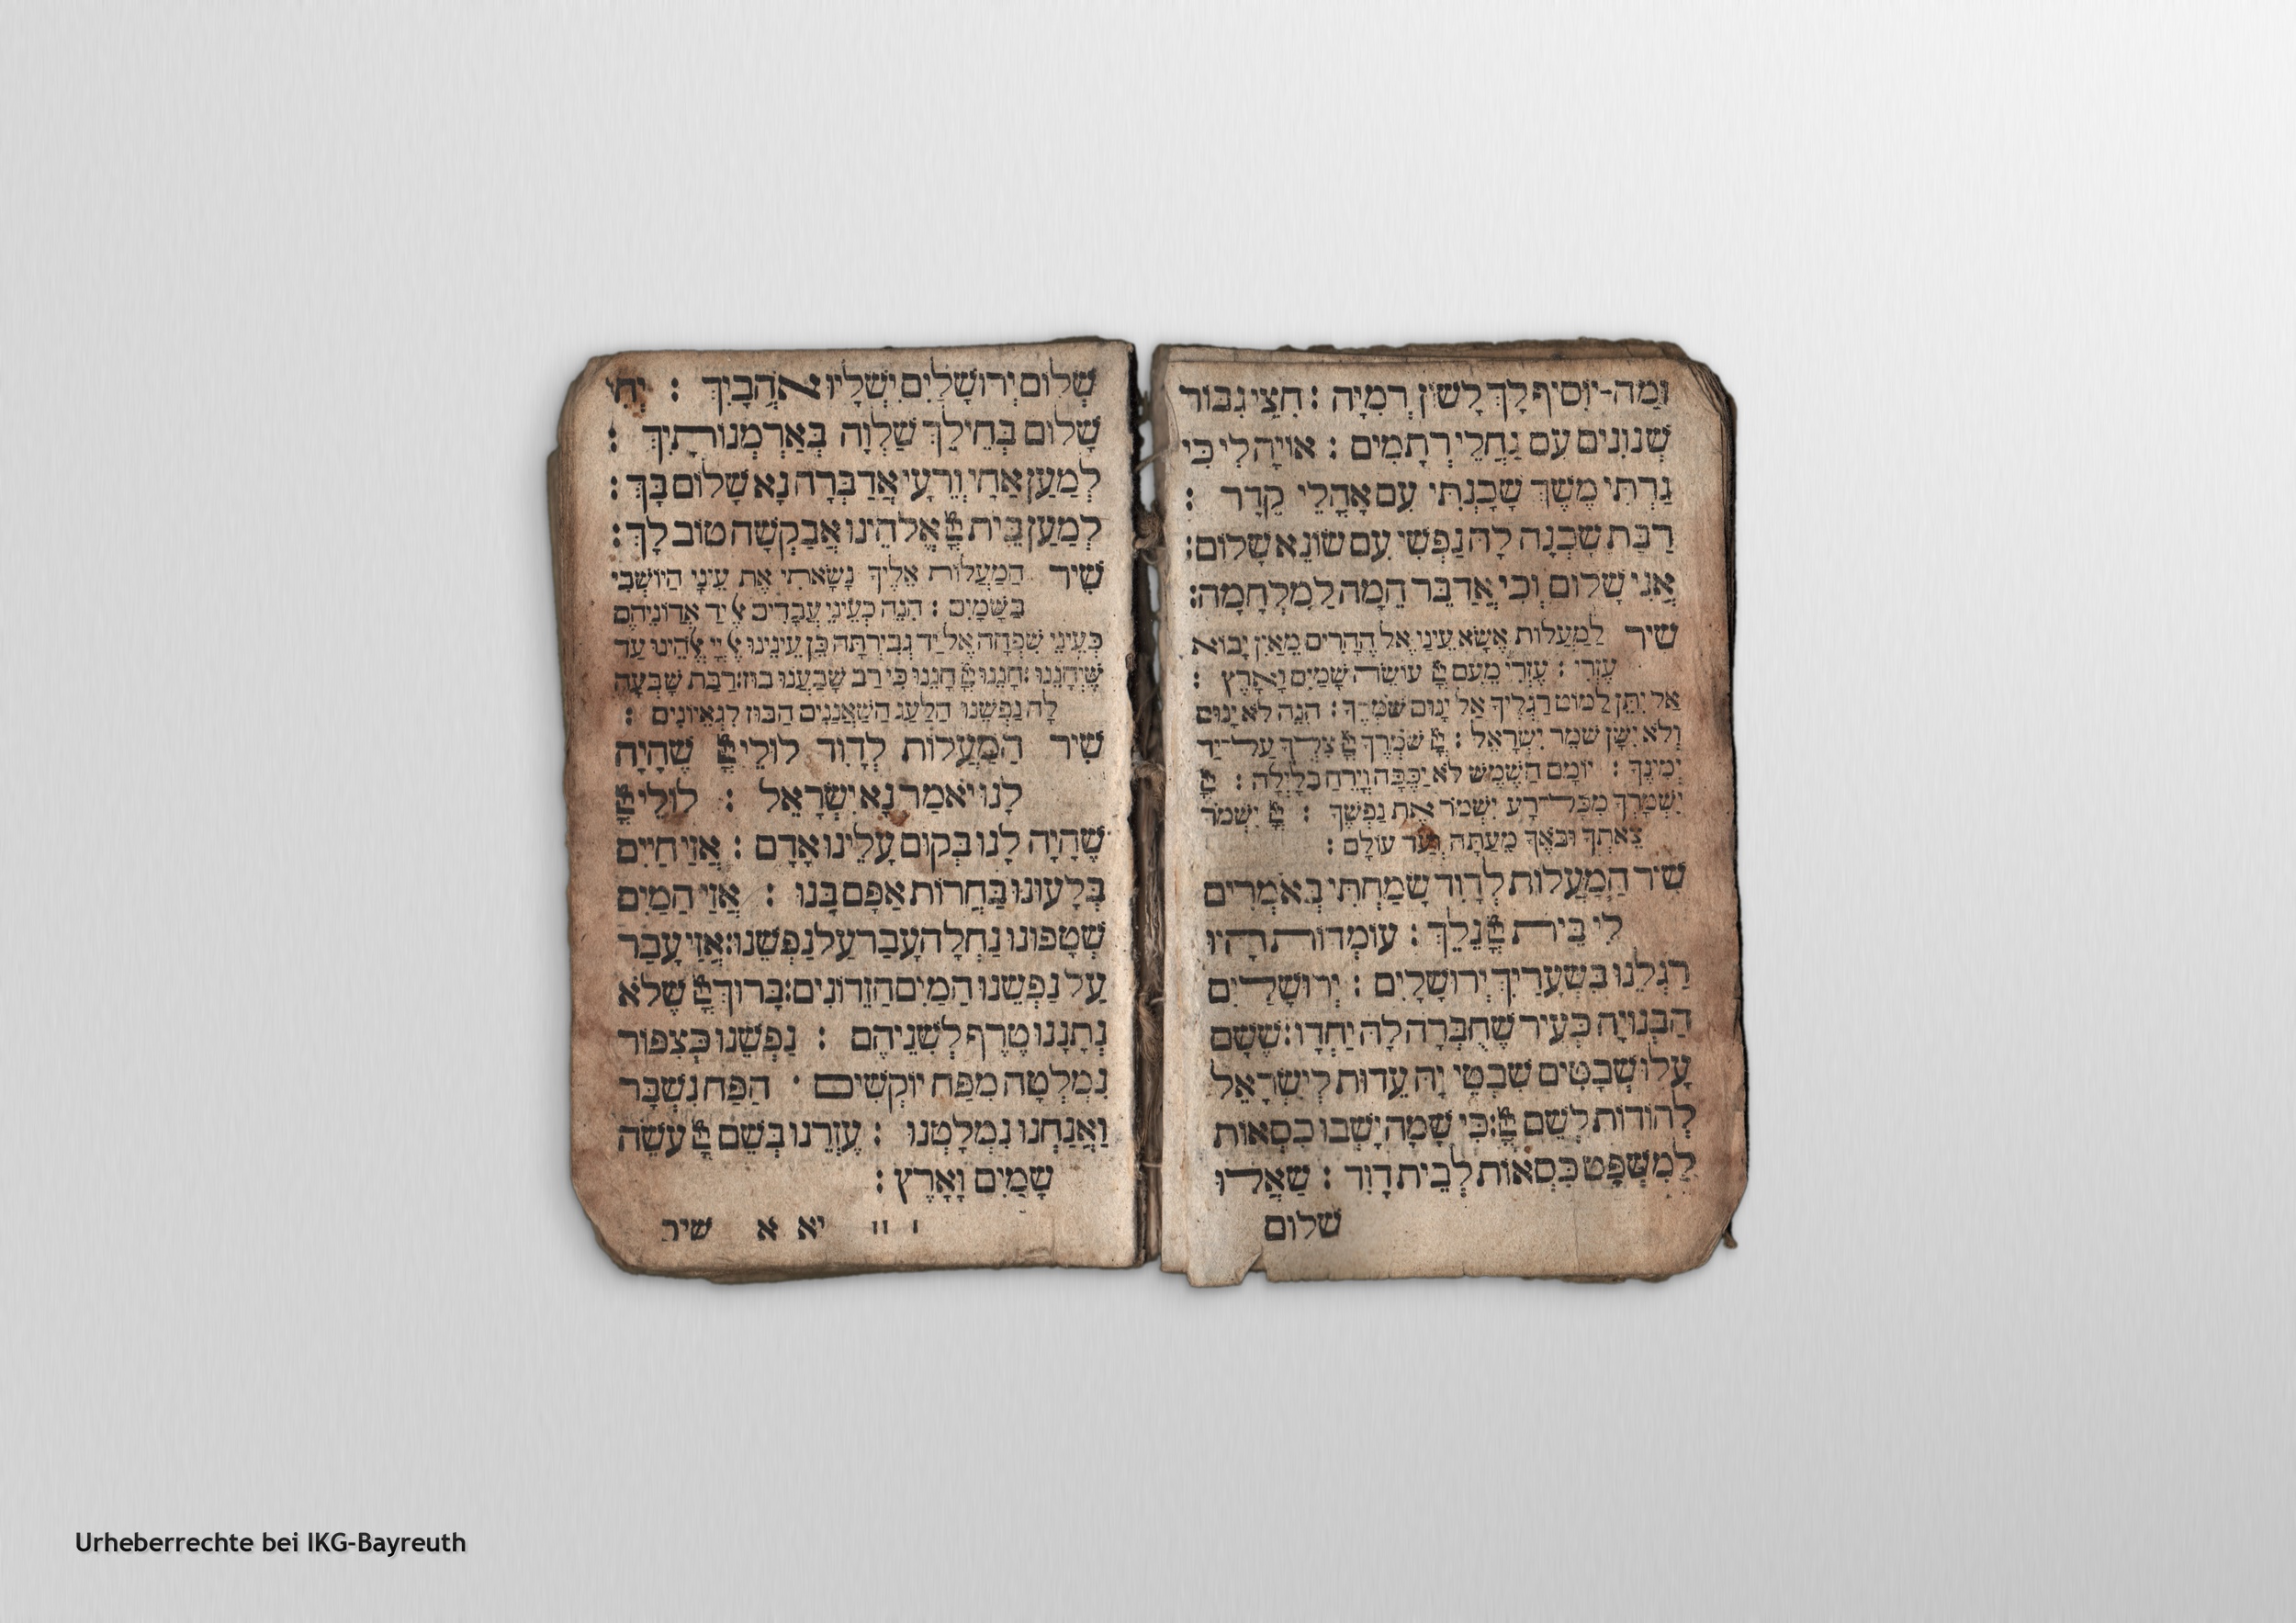 וּמַה-יוֹסִיף לָךְ לָשׁוֹן רְמִיָּה : חִצֵּי גִבּוֹר
שְׁנוּנִים עִם גַּחֲלֵי רְתָמִים : אויָה לִי כִּי
גַרְתִּי מֶשֶׁךְ שָׁכַנְתִּי עִם אָהֳלֵי קֵדָר :
רַבַּת שָׁכְנָה לָּהּ נַפְשִׁי עִם שׂוֹנֵא שָׁלוֹם :
אֲנִי שָׁלוֹם וְכִי אֲדַבֵּר הֵמָּה לַמִּלְחָמָה :
שִׁיר לַמַּעֲלוֹת אֶשָּׂא עֵינַי אֶל הֶהָרִים מֵאַיִן יָבוֹא
עֶזְרִי : עֶזְרִי מֵעִם יְיָ עוֹשֵׂה שָׁמַיִם וָאָרֶץ :
אַל יִתֵּן לַמּוֹט רַגְלֶיךָ אַל יָנוּם שֹׁמְרֶךָ : הִנֵּה לֹא יָנוּם
וְלֹא יִישָׁן שׁוֹמֵר יִשְׂרָאֵל : יְיָ שֹׁמְרֶךָ יְיָ צִלְּךָ עַל יַד
יְמִינֶךָ : יוֹמָם הַשֶּׁמֶשׁ לֹא יַכֶּכָּה וְיָרֵחַ בַּלָּיְלָה : יְיָ
יִשְׁמָרְךָ מִכָּל רָע יִשְׁמֹר אֶת נַפְשֶׁךָ : יְיָ יִשְׁמֹר
צֵאתְךָ וּבֹאֶךָ מֵעַתָּה וְעַד עוֹלָם :
שִׁיר הַמַּעֲלוֹת לְדָוִד שָׂמַחְתִּי בְּאֹמְרִים
לִי בֵּית יְיָ נֵלֵךְ : עוֹמְדוֹת הָיוּ
רַגְלֵנוּ בִּשְׁעָרַיִךְ יְרוּשָׁלָיִם : יְרוּשָׁלַיִם
הַבְּנוּיָה כְּעִיר שֶׁחֻבְּרָה לָּהּ יַחְדָּו : שֶׁשָּׁם
עָלוּ שְׁבָטִים שִׁבְטֵי יָהּ עֵדוּת לְיִשְׂרָאֵל
לְהוֹדוֹת לְשֵׁם יְיָ : כִּי שָׁמָּה יָשְׁבוּ כִסְאוֹת
לַמִּשְׁפָּט כִּסְאוֹת לְבֵית דָּוִד : שַׁאֲלוּ
שלום
שְׁלוֹם יְרוּשָׁלָיִם יִשְׁלָיוּ אֹהֲבָיִךְ : יְהִי
שָׁלוֹם בְּחֵילֵךְ שַׁלְוָה בְּאַרְמְנוֹתָיִךְ :
לְמַעַן אַחַי וְרֵעָי אֲדַבְּרָה נָּא שָׁלוֹם בָּךְ :
לְמַעַן בֵּית יְיָ אֱלֹהֵינוּ אֲבַקְשָׁה טוֹב לָךְ :
שִׁיר הַמַּעֲלוֹת אֵלֶיךָ נָשָׂאתִי אֶת עֵינַי הַיּוֹשְׁבִי
בַּשָּׁמָיִם : הִנֵּה כְעֵינֵי עֲבָדִים אֶל יַד אֲדוֹנֵיהֶם
כְּעֵינֵי שִׁפְחָה אֶל יַד גְּבִירְתָּהּ כֵּן עֵינֵינוּ אֶל יְיָ אֱלֹהֵינוּ עַד
שֶׁיְּחָנֵּנוּ : חָנֵּנוּ יְיָ חָנֵּנוּ כִּי רַב שָׂבַעְנוּ בוּז : רַבַּת שָׂבְעָה
לָּהּ נַפְשֵׁנוּ הַלַּעַג הַשַּׁאֲנַנִּים הַבּוּז לִגְאֵיוֹנִים :
שִׁיר הַמַּעֲלוֹת לְדָוִד לוּלֵי יְיָ שֶׁהָיָה
לָנוּ יֹאמַר נָא יִשְׂרָאֵל : לוּלֵי יְיָ
שֶׁהָיָה לָנוּ בְּקוּם עָלֵינוּ אָדָם : אֲזַי חַיִּים
בְּלָעוּנוּ בַּחֲרוֹת אַפָּם בָּנוּ : אֲזַי הַמַּיִם
שְׁטָפוּנוּ נַחְלָה עָבַר עַל נַפְשֵׁנוּ : אֲזַי עָבַר
עַל נַפְשֵׁנוּ הַמַּיִם הַזֵּדוֹנִים : בָּרוּךְ יְיָ שֶׁלֹּא
נְתָנָנוּ טֶרֶף לְשִׁנֵּיהֶם : נַפְשֵׁנוּ כְּצִפּוֹר
נִמְלְטָה מִפַּח יוֹקְשִׁים הַפַּח נִשְׁבָּר
וַאֲנַחְנוּ נִמְלָטְנוּ : עֶזְרֵנוּ בְּשֵׁם יְיָ עֹשֵׂה
שָׁמַיִם וָאָרֶץ :
יא א שיר
Urheberrechte bei IKG-Bayreuth